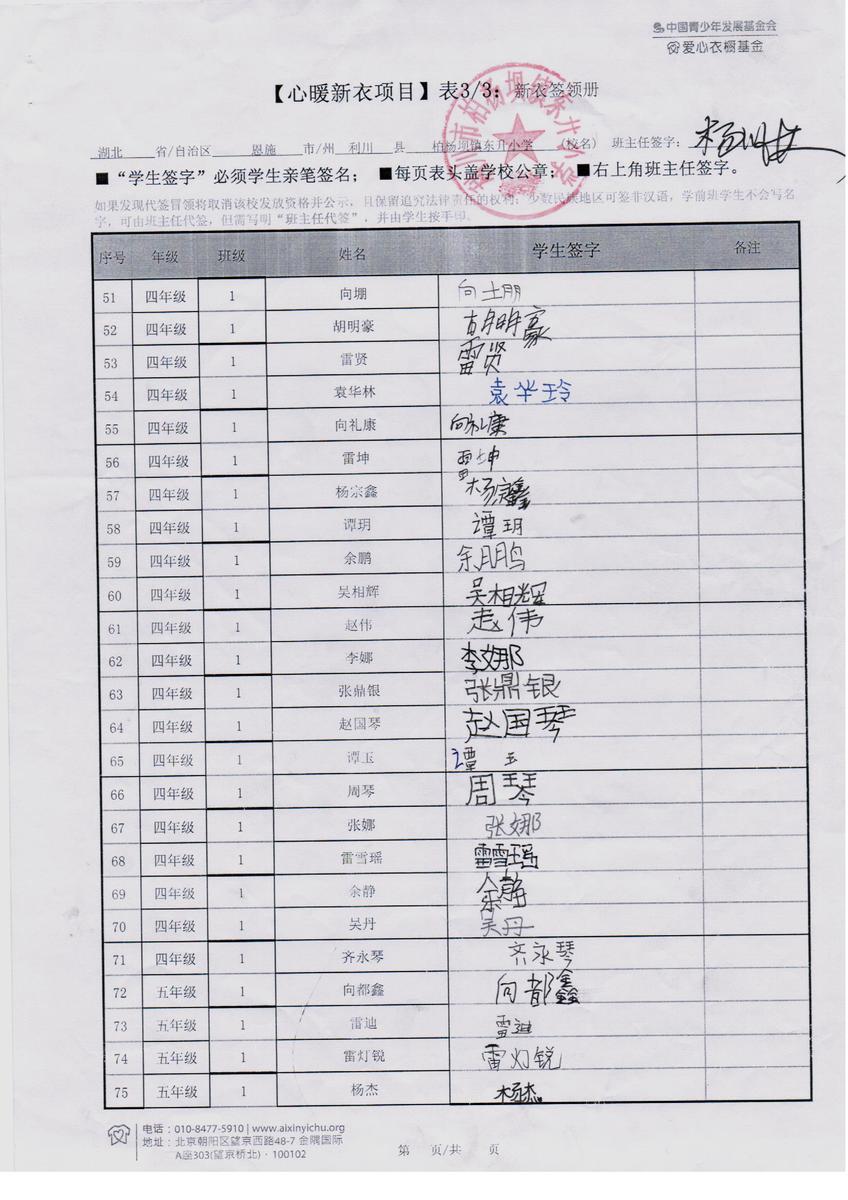 中国青少年发展基金会
爱心衣橱基金
【心暖新衣项目】表3/3：新衣签领册
湖北 省/自治区 恩施 市/州 利川 县 柏杨坝镇东升小学 (校名) 班主任签字：
■“学生签字”必须学生亲笔签名； ■每页表头盖学校公章； ■右上角班主任签字。
如果发现代签冒领将取消该校发放资格并公示，且保留追究法律责任的权利；少数民族地区可签非汉语，学前班学生不会写名
字，可由班主任代签，但需写明“班主任代签”，并由学生按手印。
序号 年级 班级 姓名 学生签字 备注
51 四年级 1 向堋 向土朋
52 四年级 1 胡明豪 胡明豪
53 四年级 1 雷贤 雷贤
54 四年级 1 袁华林 袁华玲
55 四年级 1 向礼康 向礼康
56 四年级 1 雷坤 雷坤
57 四年级 1 杨宗鑫 杨宗鑫
58 四年级 1 谭玥 谭玥
59 四年级 1 余鹏 余鹏
60 四年级 1 吴相辉 吴相辉
61 四年级 1 赵伟 赵伟
62 四年级 1 李娜 李娜
63 四年级 1 张鼎银 张鼎银
64 四年级 1 赵国琴 赵国琴
65 四年级 1 谭玉 谭玉
66 四年级 1 周琴 周琴
67 四年级 1 张娜 张娜
68 四年级 1 雷雪瑶 雷雪瑶
69 四年级 1 余静 余静
70 四年级 1 吴丹 吴丹
71 四年级 1 齐永琴 齐永琴
72 五年级 1 向都鑫 向都鑫
73 五年级 1 雷迪 雷迪
74 五年级 1 雷灯锐 雷灯锐
75 五年级 1 杨杰 杨杰
电话：010-8477-5910 | www.aixinyichu.org
地址：北京朝阳区望京西路48-7 金隅国际
A座303(望京桥北)·100102
第 页/共 页